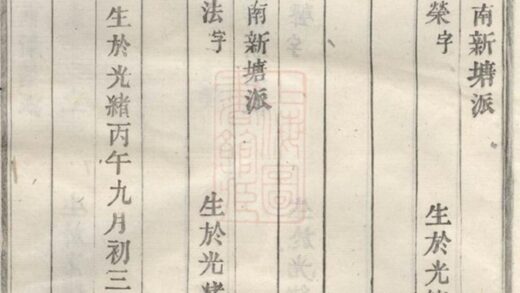 南新塘派
榮字
生於光緒
南新塘派
法字
生於光緒
生於光緒丙午九月初三